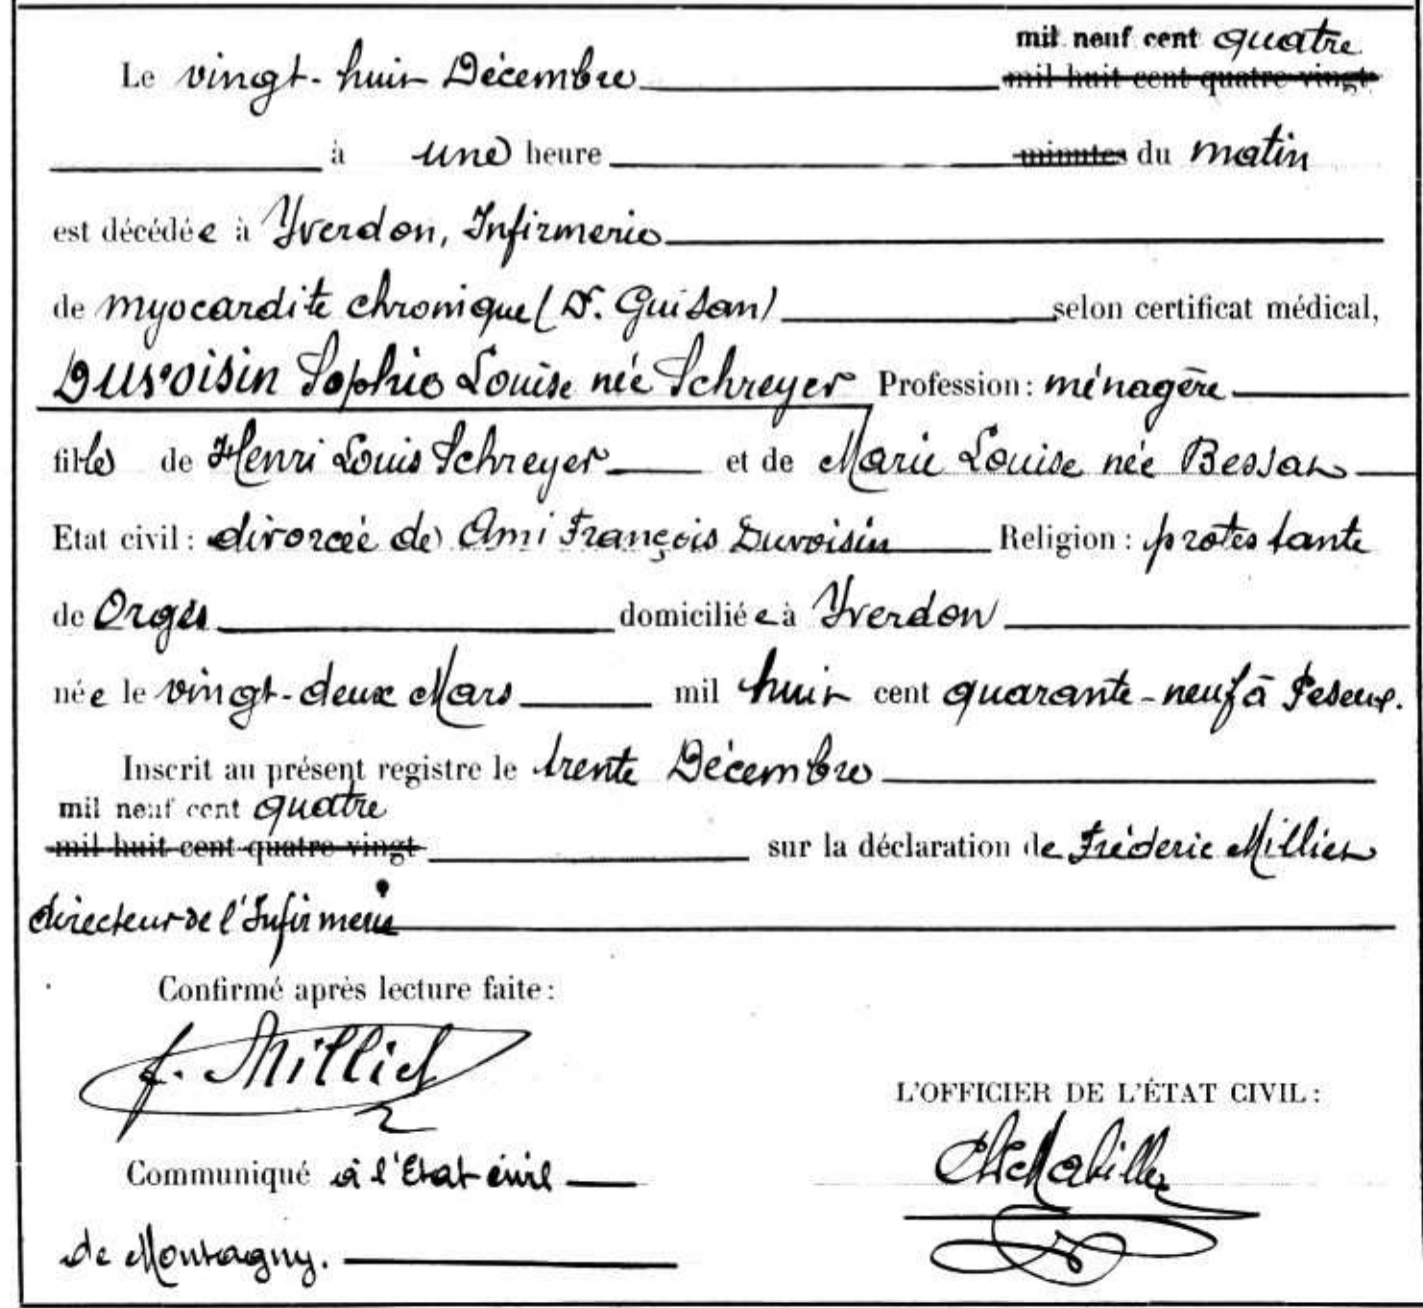 mil neuf cent quatre
Le vingt-huit Décembre mil huit cent quatre vingt
à une heure minutes du matin
est décédée à Yverdon, Infirmerie
de myocardite chronique (Dr. Guisan) selon certificat médical,
Duvoisin Sophie Louise née Schreyer Profession: ménagère
fille de Henri Louis Schreyer et de Marie Louise née Bessat
Etat civil: divorcée de Ami François Duvoisin Religion: protestante
de Orges domiciliée à Yverdon
née le vingt-deux Mars mil huit cent quarante-neuf à Peseux.
Inscrit au présent registre le trente Décembre
mil neuf cent quatre
mil huit cent quatre vingt sur la déclaration de Fréderic Milliet
directeur de l'Infirmerie
Confirmé après lecture faite:
f. Milliet
L'OFFICIER DE L'ÉTAT CIVIL:
Communiqué à l'Etat civil
de Montagny.